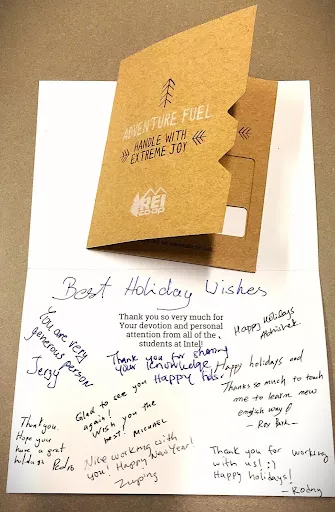 ADVENTURE FUEL
HANDLE WITH
EXTREME JOY
REI
CO-OP
Best Holiday Wishes
Thank you so very much for
Your devotion and personal
attention from all of the
students at Intel!
You are very
generous person
Jerzy
Thank you for sharing
your knowledge
Happy
Happy Holidays
Abhishek
Happy holidays and
Thanks so much to teach
me to learn new
english way
- Park -
Glad to see you
again!
Wish you the
best! Michael
Thank you.
Hope you
have a great
holidays Pedro
Nice working with
you! Happy New Year!
Zuping
Thank you for working
with us! :)
Happy holidays!
- Rodny